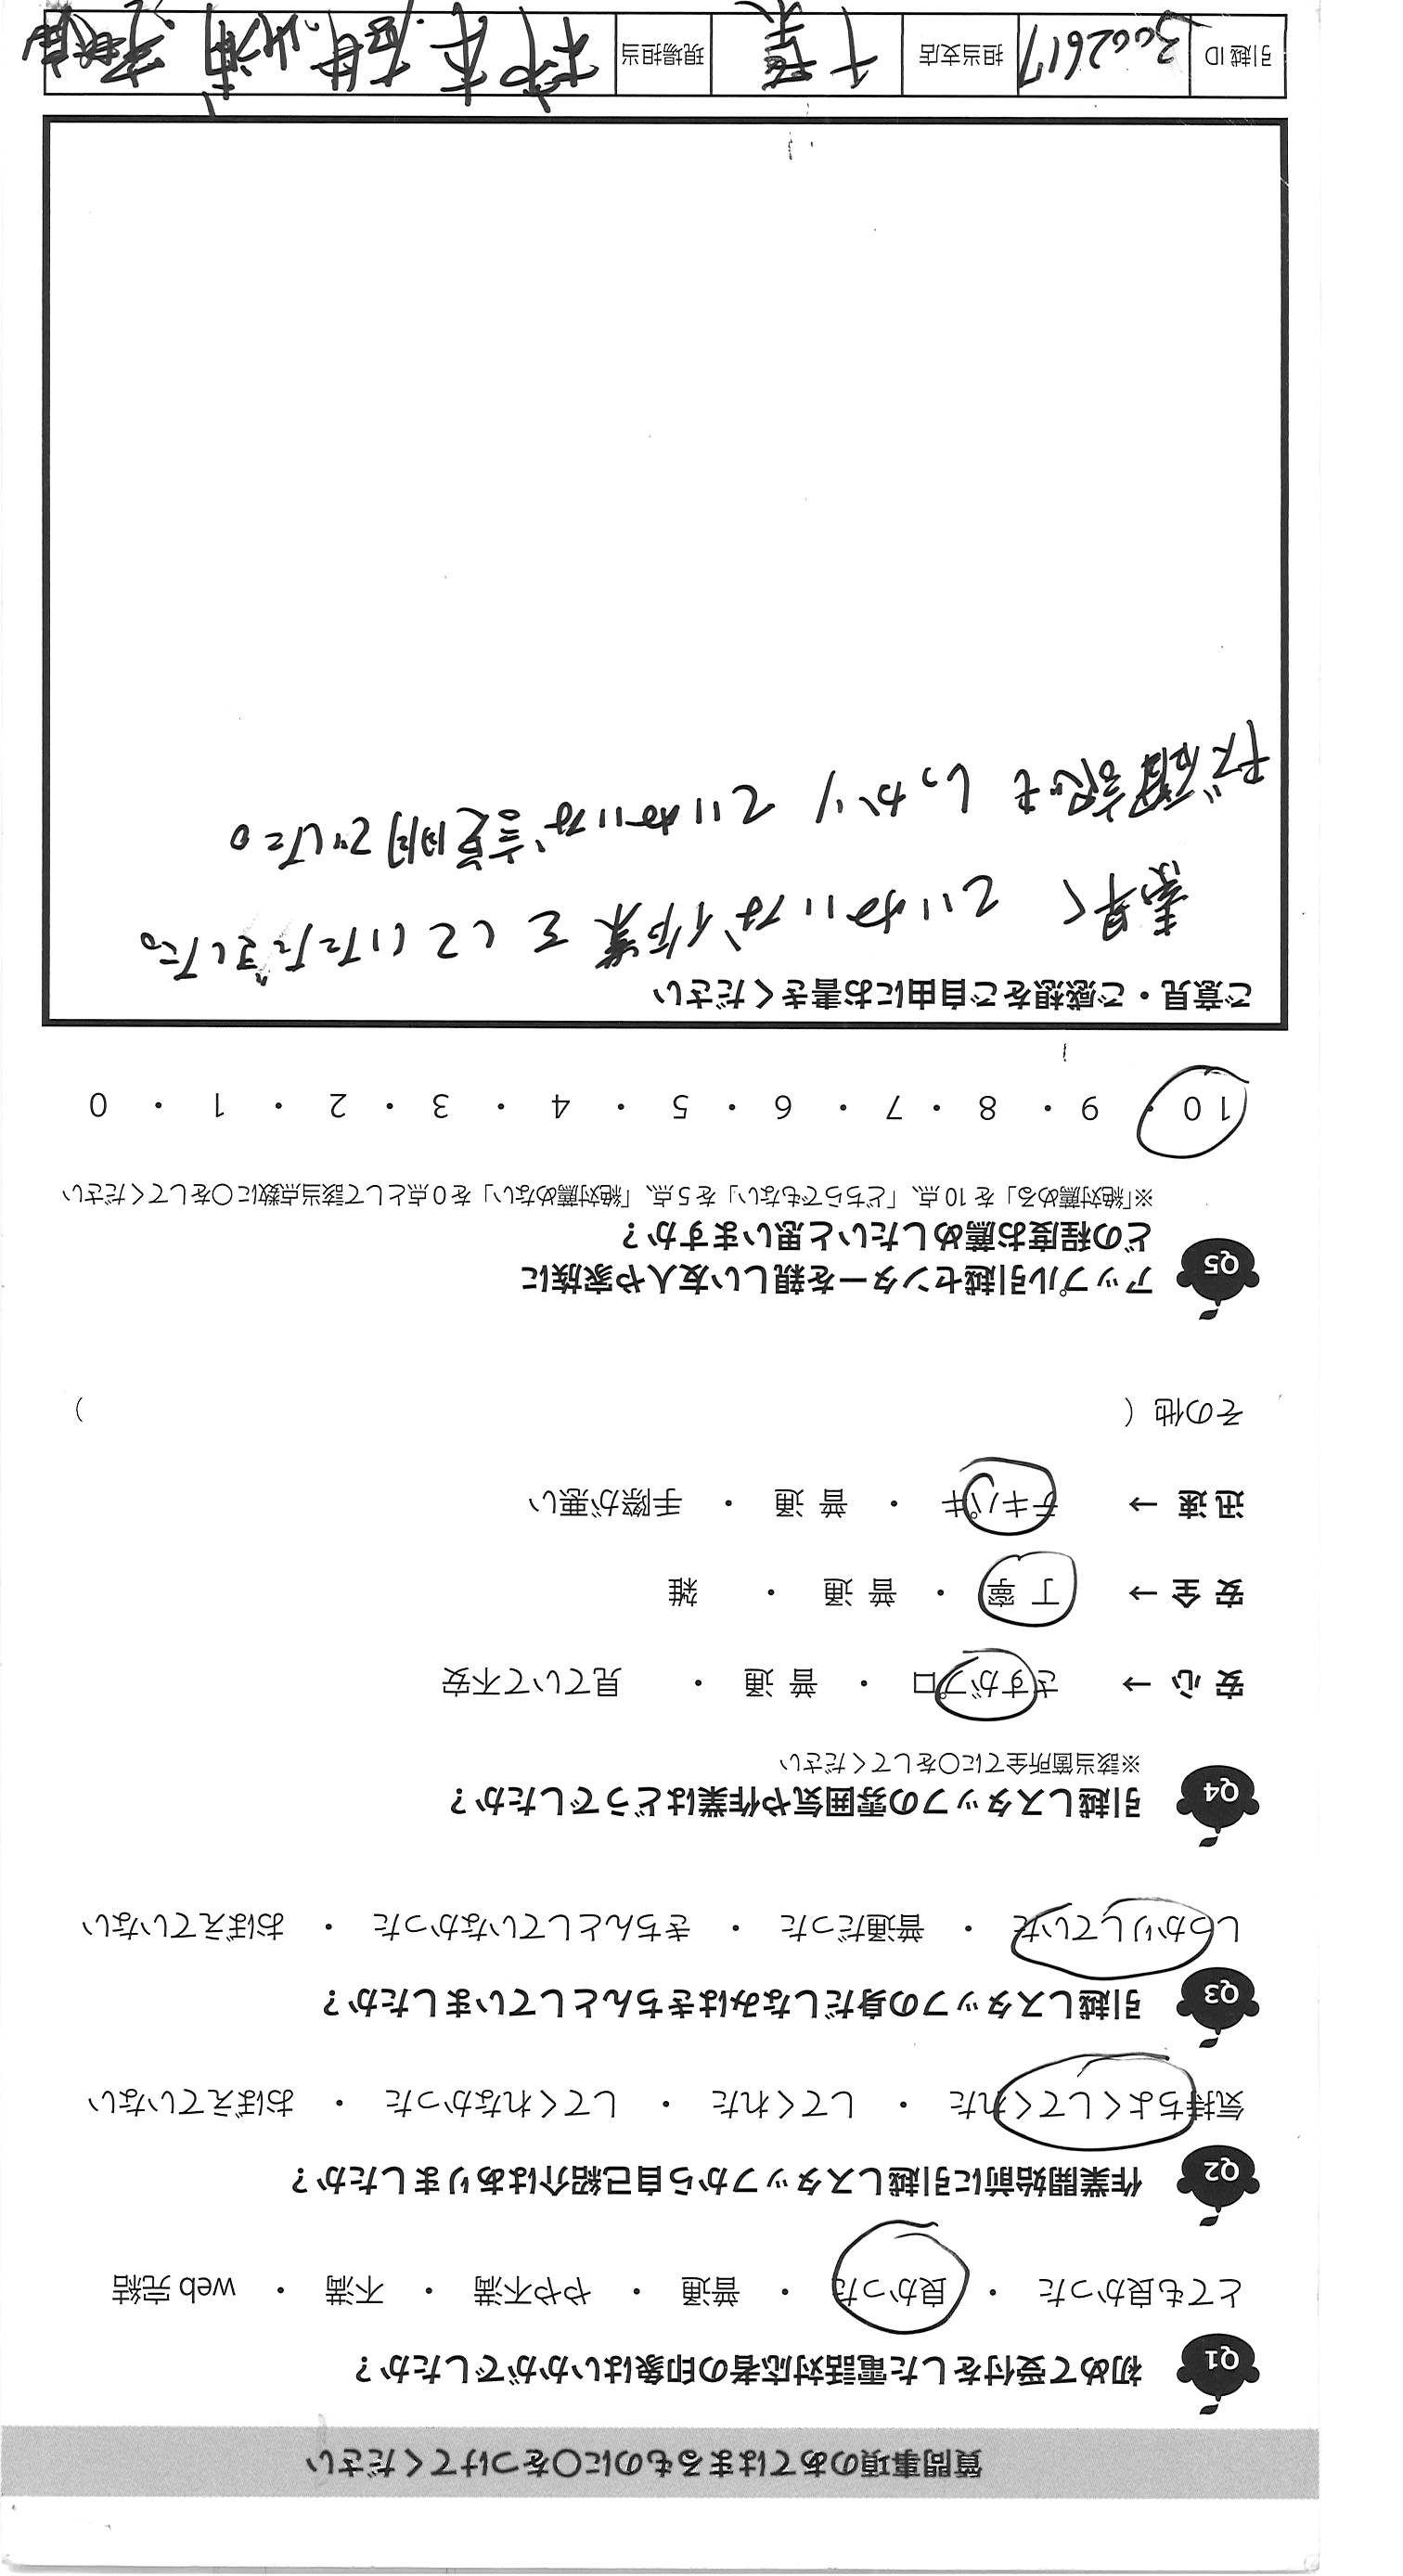 質問事項のあてはまるものに○をつけてください
Q1 初めて受付をした電話対応者の印象はいかがでしたか？
とても良かった ・ 良かった ・ 普通 ・ やや不満 ・ 不満 ・ web 完結
Q2 作業開始前に引越しスタッフから自己紹介はありましたか？
気持ちよくしてくれた ・ してくれた ・ してくれなかった ・ おぼえていない
Q3 引越しスタッフの身だしなみはきちんとしていましたか？
しっかりしていた ・ 普通だった ・ きちんとしていなかった ・ おぼえていない
Q4 引越しスタッフの雰囲気や作業はどうでしたか？
※該当箇所全てに○をしてください
安心 → さすがプロ ・ 普通 ・ 見ていて不安
安全 → 丁寧 ・ 普通 ・ 雑
迅速 → テキパキ ・ 普通 ・ 手際が悪い
その他（ ）
Q5 アップル引越センターを親しい友人や家族に
どの程度お薦めしたいと思いますか？
※「絶対薦める」を 10 点、「どちらでもない」を 5 点、「絶対薦めない」を 0 点として該当点数に○をしてください
10 ・ 9 ・ 8 ・ 7 ・ 6 ・ 5 ・ 4 ・ 3 ・ 2 ・ 1 ・ 0
ご意見・ご感想をご自由にお書きください
素早く ていねいな作業をしていただきました。
確認も しっかり ていねいな説明でした。
引越 ID 3002617 担当支店 千葉 現場担当